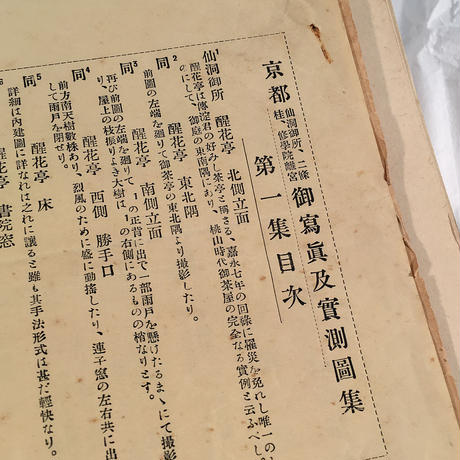 京都 仙洞御所、二條 桂、修學院離宮 御寫眞及實測圖集
第一集目次
1
仙洞御所 醒花亭 北側立面
醒花亭は傳淀君の好みし茶亭と稱さる、嘉永七年の回祿に罹災を免れし唯一の
のにして、御庭の東南隅にあり、桃山時代御茶屋の完全なる實例と云ふべし。
2
同 醒花亭 東北隅
前圖の左端を廻りて御茶亭の東北隅より撮影したり。
3
同 醒花亭 南側立面
再び前圖の左端を廻りて1の正背に出で一部雨戸を懸けたるまゝにて撮影
り、屋上の枝振りよき大樹は、1の右側にあるものの梢なりとす。
4
同 醒花亭 西側 勝手口
前方南天樹數株あり、烈風のために盛に動搖したり、連子窓の左右共に出
して雨戸を閉せり。
5
同 醒花亭 床
詳細は内建圖に詳なればこれに讓ると雖も其手法形式は甚だ輕快なり。
6
醒花亭 書院窓